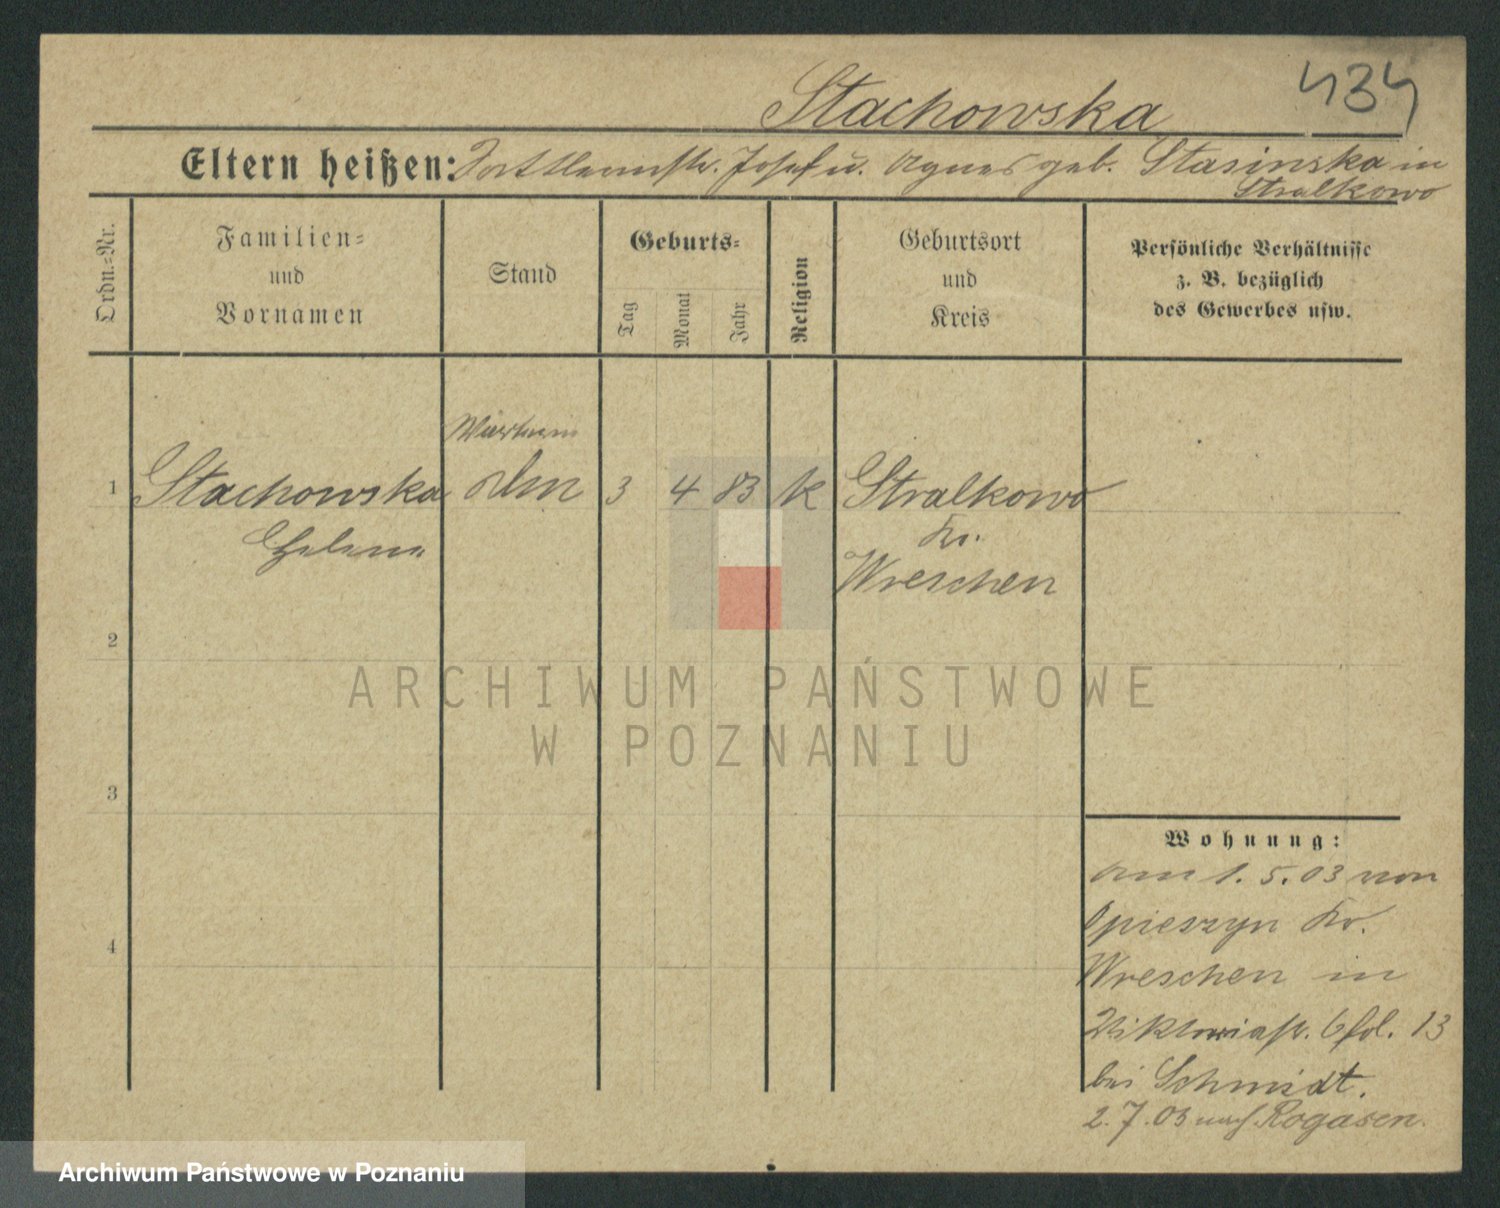 434
Stachowska
Eltern heißen: Josef u. Agnes geb. Stasinska in
Stralkowo
Ordn.-Nr.
Familien-
und
Vornamen
Stand
Geburts-
Tag
Monat
Jahr
Religion
Geburtsort
und
Kreis
Persönliche Verhältnisse
z. B. bezüglich
des Gewerbes usw.
1 Stachowska 3 4 83 k Stralkowo
Helena
Kr.
Wreschen
2
3
4
Wohnung:
am 1. 5. 03 von
Opieszyn Kr.
Wreschen in
Viktoriastr. 6 fol. 13
bei Schmidt.
2. 7. 03 nach Rogasen.
ARCHIWUM PAŃSTWOWE
W POZNANIU
Archiwum Państwowe w Poznaniu